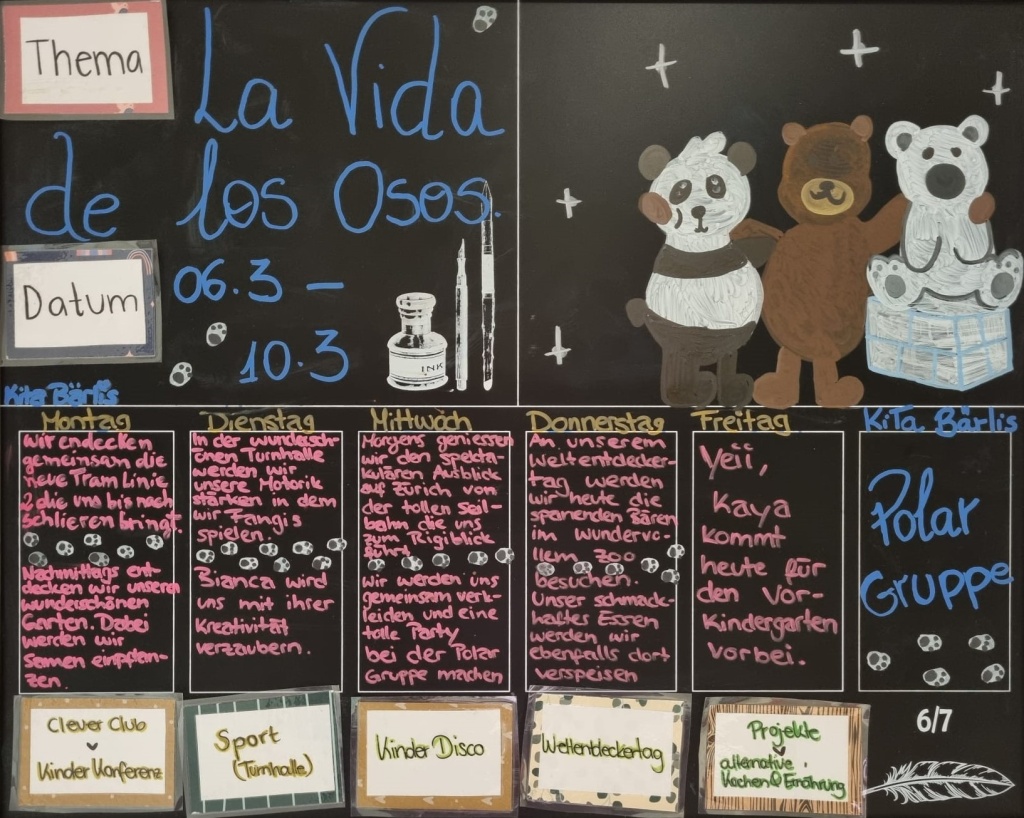 Thema
La Vida
de los Osos.
Datum
06.3 –
10.3
INK
Kita Bärlis
Montag
Wir endecken
gemeinsam die
neue Tram Linie
2 die uns bis nach
Schlieren bringt.
Nachmittags ent-
decken wir unseren
wunderschönen
Garten. Dabei
werden wir
Samen einpflan-
zen.
Clever Club
Kinder Konferenz
Dienstag
In der wundersch-
önen Turnhalle
werden wir
unsere Motorik
stärken in dem
wir Fangis
spielen.
Bianca wird
uns mit ihrer
Kreativität
verzaubern.
Sport
(Turnhalle)
Mittwoch
Morgens geniessen
wir den spekta-
kulären Ausblick
auf Zürich von
der tollen Seil-
bahn die uns
zum Rigiblick
führt
Wir werden uns
gemeinsam verk-
leiden und eine
tolle Party
bei der Polar
Gruppe machen
Kinder Disco
Donnerstag
An unserem
Weltentdecker-
tag werden
wir heute die
spanenden Bären
im wundervo-
llem Zoo
besuchen.
Unser schmack-
haftes Essen
werden wir
ebenfalls dort
verspeisen
Weltentdeckertag
Freitag
Yeii,
Kaya
kommt
heute für
den Vor-
Kindergarten
vorbei.
Projekte
alternative
Kochen & Ernährung
KiTa Bärlis
Polar
Gruppe
6/7